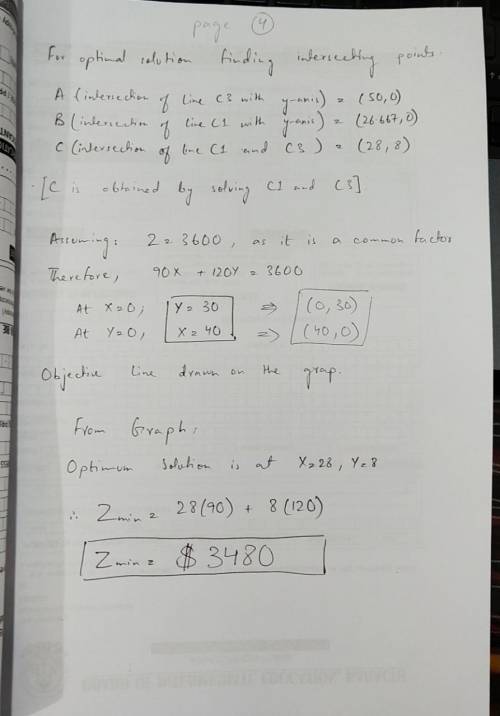 page 4
For optimal solution finding intersecting points.
A (intersection of line C3 with y-axis) = (50,0)
B (intersection of line C1 with y-axis) = (26.667,0)
C (intersection of line C1 and C3) = (28,8)
[C is obtained by solving C1 and C3]
Assuming: Z = 3600, as it is a common factor
Therefore, 90X + 120Y = 3600
At X=0; Y = 30 ⇒ (0,30)
At Y=0, X = 40 ⇒ (40,0)
Objective line drawn on the grap.
From Graph:
Optimum solution is at X=28, Y=8
∴ Zmin = 28(90) + 8(120)
Zmin = $3480